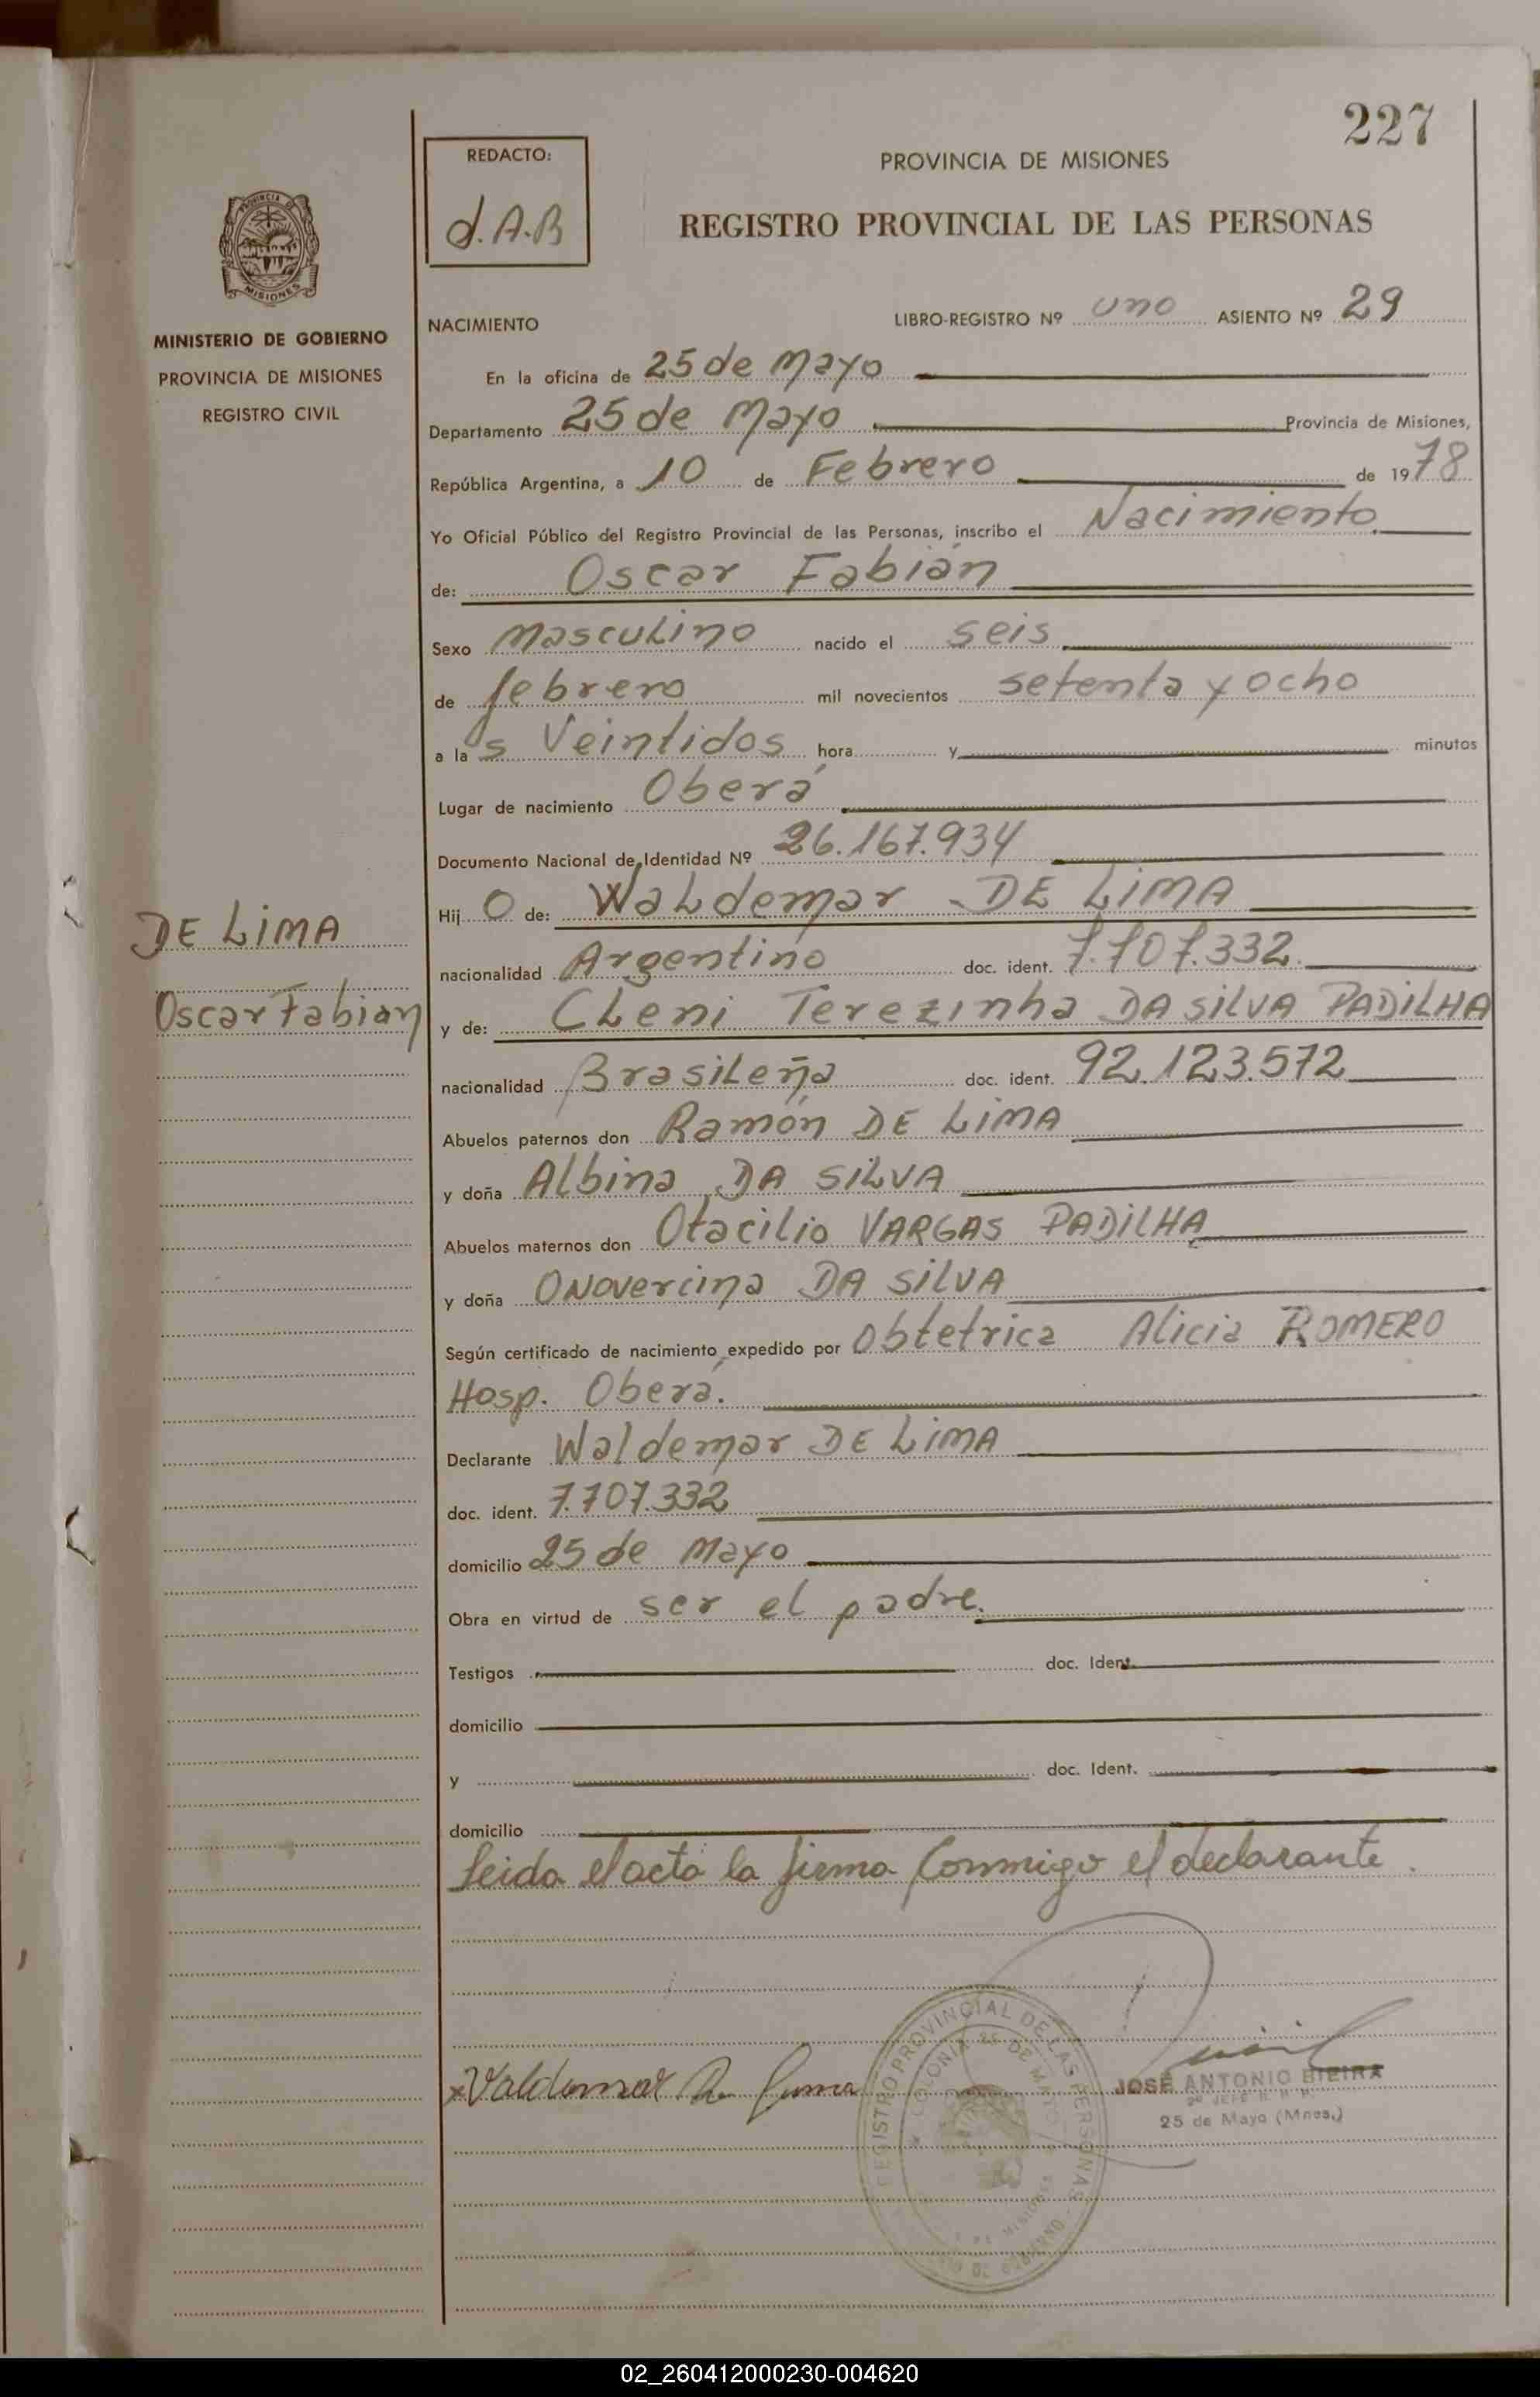 227
REDACTO:
d.A.B
PROVINCIA DE MISIONES
REGISTRO PROVINCIAL DE LAS PERSONAS
PROVINCIA DE
MISIONES
MINISTERIO DE GOBIERNO
PROVINCIA DE MISIONES
REGISTRO CIVIL
NACIMIENTO
LIBRO-REGISTRO Nº uno ASIENTO Nº 29
En la oficina de 25 de Mayo
Departamento 25 de Mayo Provincia de Misiones,
República Argentina, a 10 de Febrero de 1978
Yo Oficial Público del Registro Provincial de las Personas, inscribo el Nacimiento
de: Oscar Fabián
Sexo Masculino nacido el seis
de febrero mil novecientos setenta y ocho
a las Veintidos hora y minutos
Lugar de nacimiento Oberá
Documento Nacional de Identidad Nº 26.167.934
Hijo de: Waldemar DE LIMA
DE LIMA
nacionalidad Argentino doc. ident. 7.707.332.
Oscar Fabian
y de: Cleni Terezinha DA SILVA PADILHA
nacionalidad Brasileña doc. ident. 92.123.572
Abuelos paternos don Ramón DE LIMA
y doña Albina DA SILVA
Abuelos maternos don Otacilio VARGAS PADILHA
y doña Onovercina DA SILVA
Según certificado de nacimiento expedido por Obtetrica Alicia ROMERO
Hosp. Oberá.
Declarante Waldemar DE LIMA
doc. ident. 7.707.332
domicilio 25 de Mayo
Obra en virtud de ser el padre.
Testigos doc. Ident.
domicilio
y doc. Ident.
domicilio
Leida el acta la firma conmigo el declarante.
REGISTRO PROVINCIAL DE LAS PERSONAS
COLONIA 25 DE MAYO
MISIONES
JOSÉ ANTONIO BIEIRA
25 de Mayo (Mnes.)
02_260412000230-004620